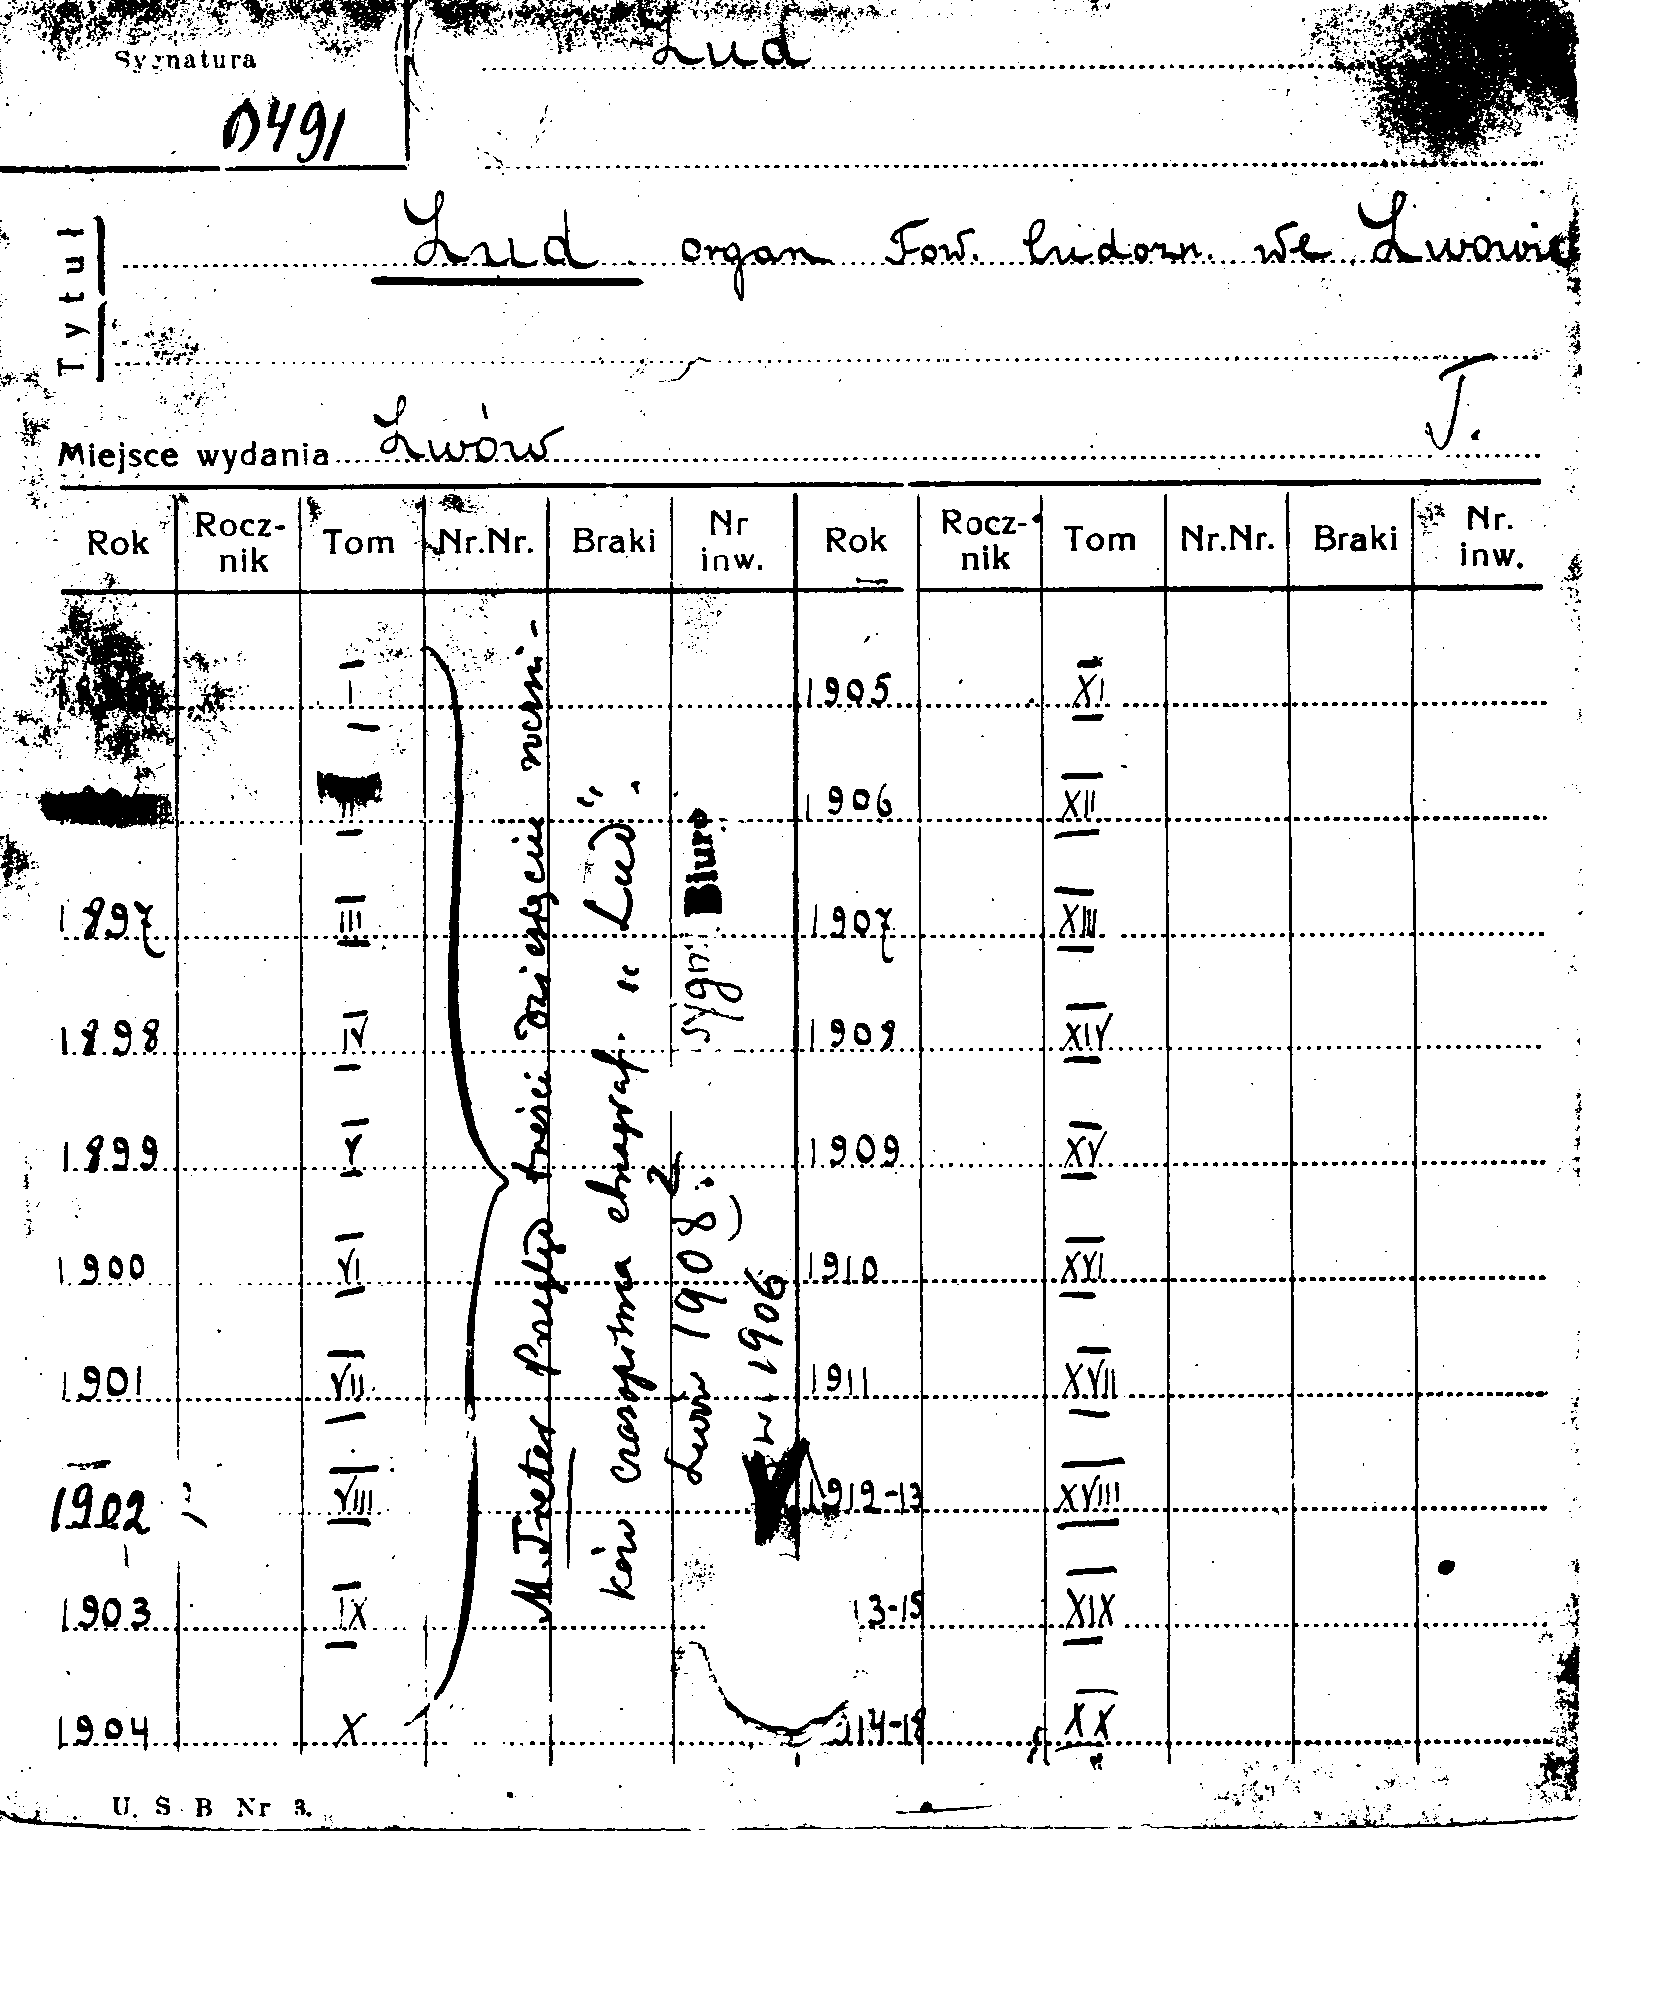 Lud
Sygnatura
D491
Tytuł
Lud organ Tow. ludozn. we Lwowie
T.
Miejsce wydania Lwów
Rok Rocz-nik Tom Nr.Nr. Braki Nr inw. Rok Rocz-nik Tom Nr.Nr. Braki Nr. inw.
I 1905 XI
II 1906 XII
1897 III 1907 XIII
1898 IV 1908 XIV
1899 V 1909 XV
1900 VI 1910 XVI
1901 VII 1911 XVII
1902 VIII 1912-13 XVIII
1903 IX 13-15 XIX
1904 X 914-18 XX
M. Treter Przegląd treści dziesięciu roczni-
ków czasopisma etnograf. "Lud".
Lwów 1908.
sygn. Biuro
1906
U. S B Nr 3.